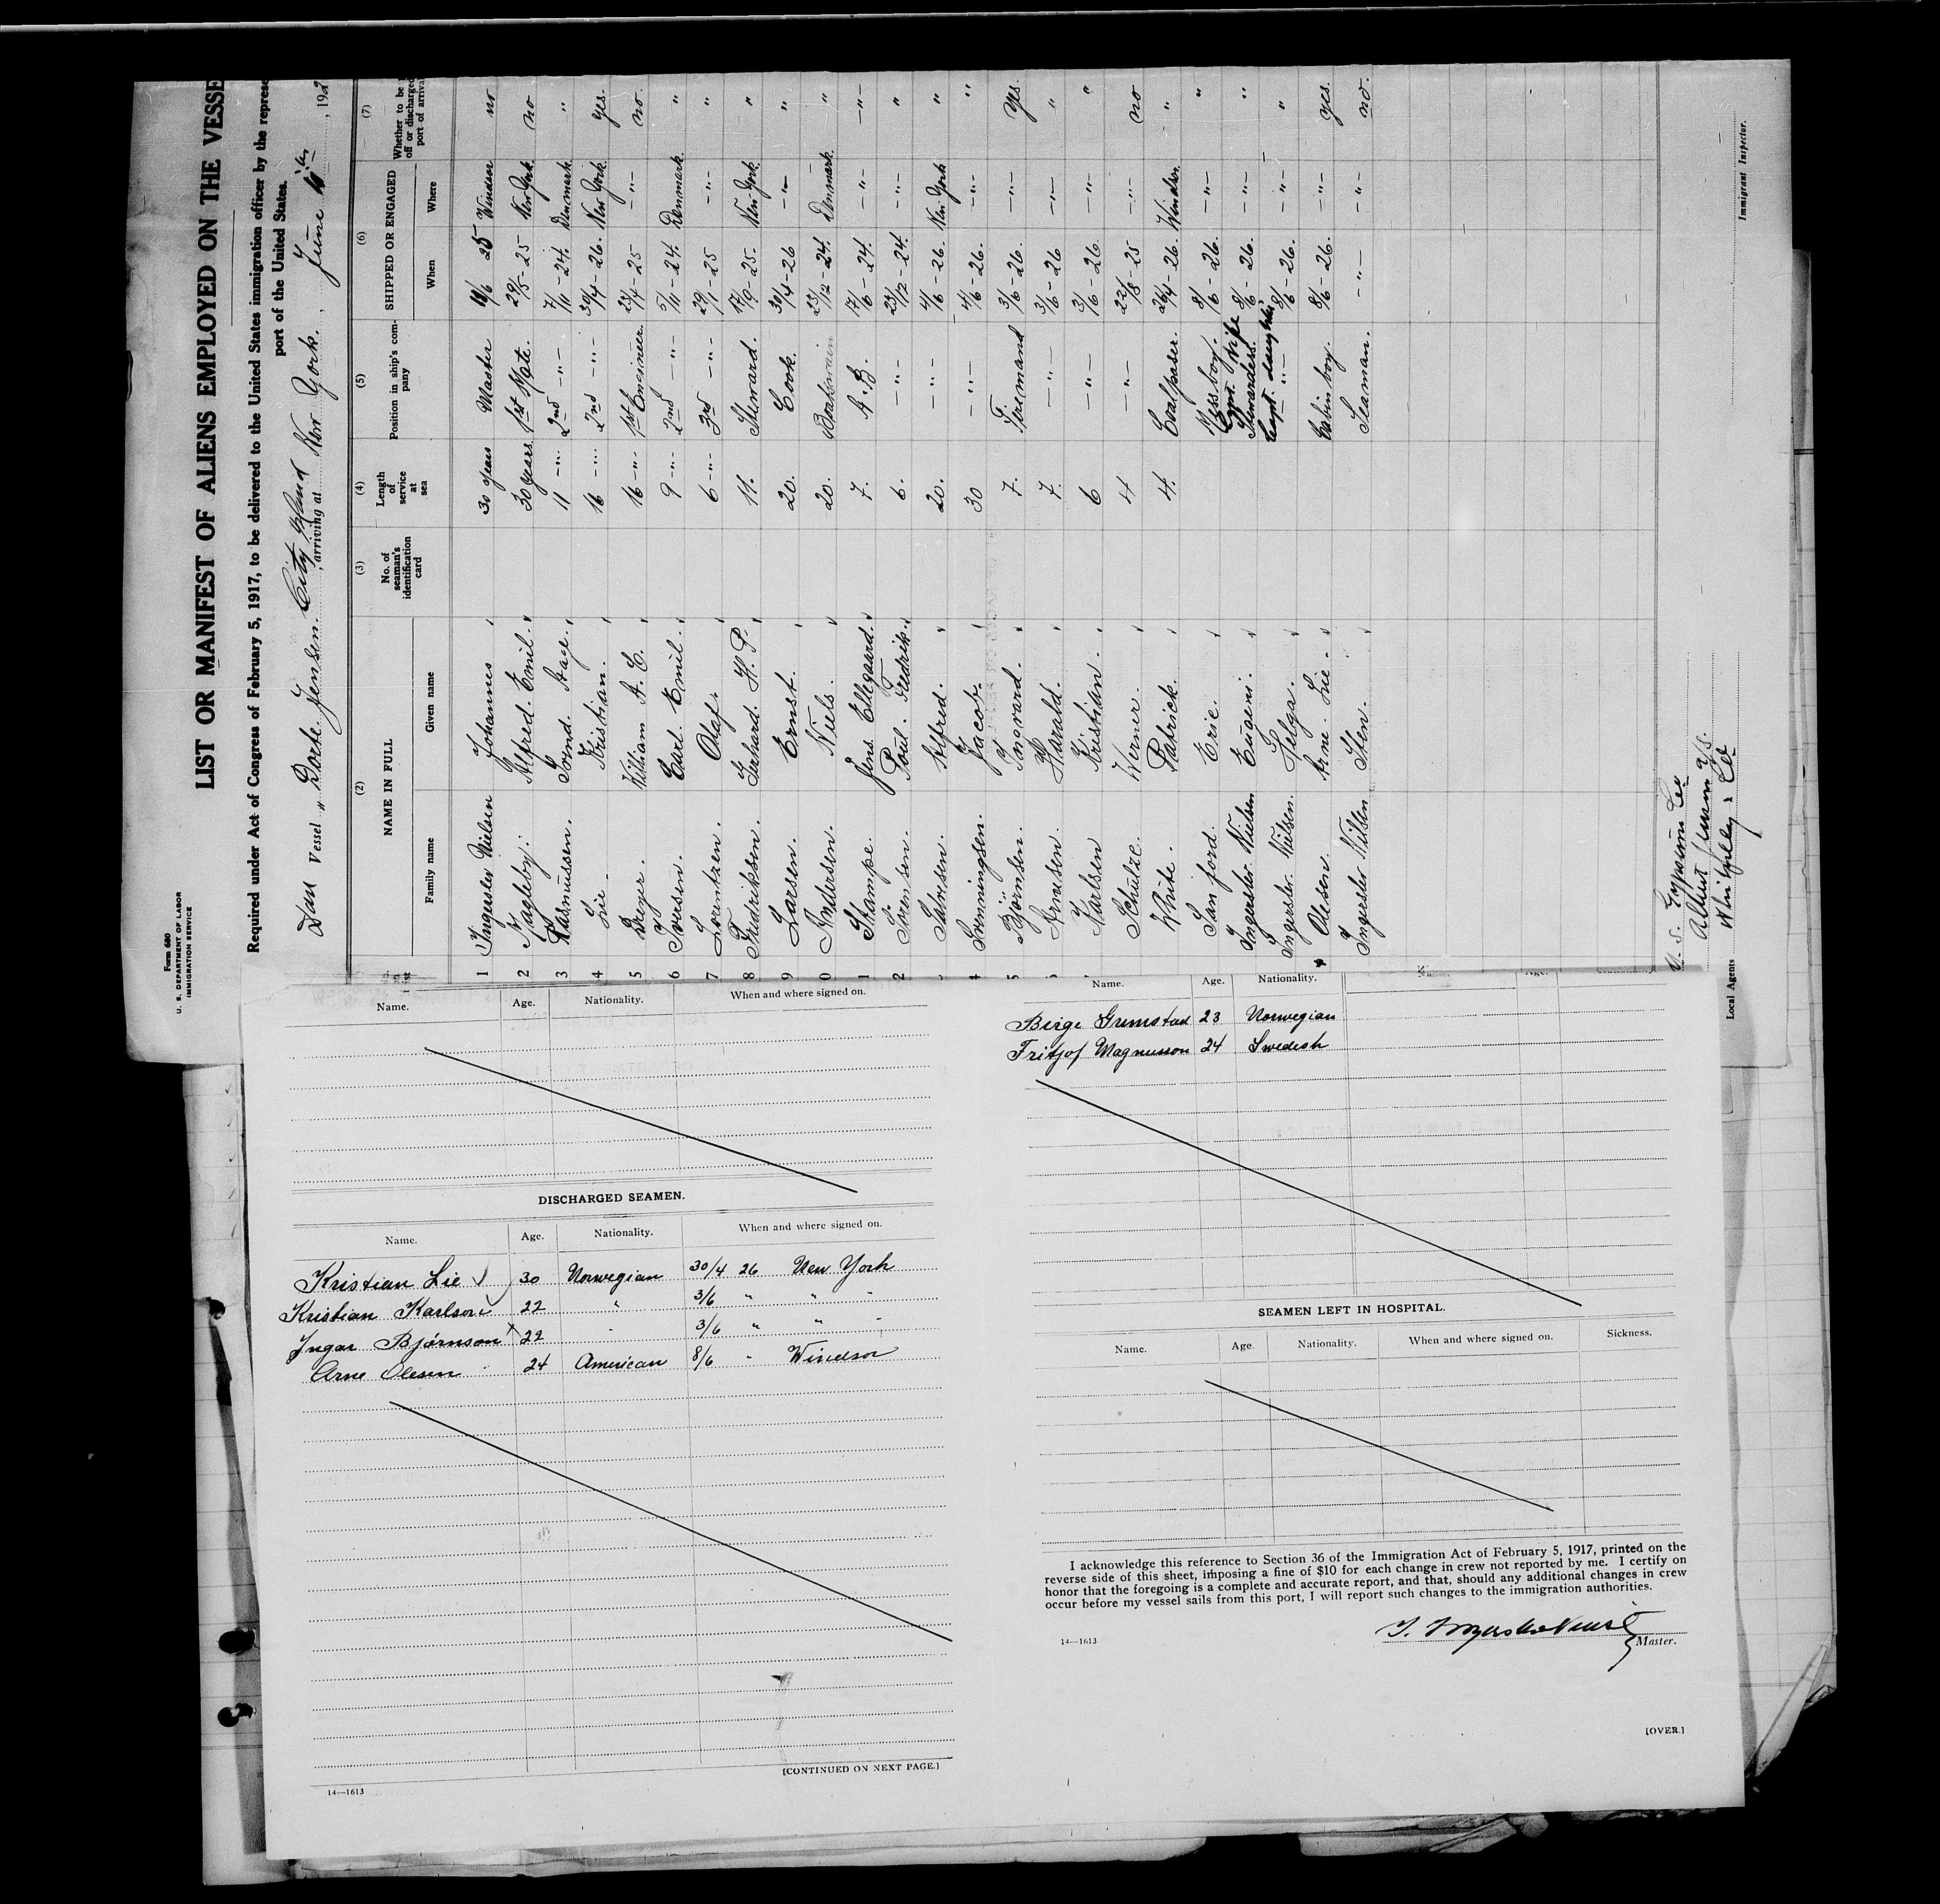 Form 680
U. S. DEPARTMENT OF LABOR
IMMIGRATION SERVICE
LIST OR MANIFEST OF ALIENS EMPLOYED ON THE VESSE
Required under Act of Congress of February 5, 1917, to be delivered to the United States immigration officer by the represe
port of the United States.
Vessel " Dorte Jensen. , arriving at New York. , June , 192
(2) (3) (4) (5) (6) (7)
NAME IN FULL No. of seaman's identification card Length of service at sea Position in ship's company SHIPPED OR ENGAGED Whether to be off or discharged port of arrival
Family name Given name When Where
1 Ingersler Nielsen Johannes 30 years Master 25 Windsor no
2 Alfred. Emil. 30 years. 1st Mate. 29/5 - 25 New York. no
3 Rasmussen. Aage. 11 -"- 2nd -"- 7/11 - 24. Denmark. "
4 Lie. Kristian. 16 -"- 2nd -"- 30/4 - 26. New York. yes.
5 Dreyer. William A. C. 16 -"- 1st Engineer. 23/7 - 25 -"- no.
6 Iversen. Carl. Emil. 9 -"- 2nd -"- 5/11 - 24. Denmark. "
7 Lorentzen. Olaf. 6 -"- 3rd -"- 29/1 - 25 -"- "
8 Fredriksen. Gerhard. H. P. 11. Steward. 17/9 - 25. New York. "
9 Larsen. Ernst. 20. Cook. 30/4 - 26 -"- "
0 Andersen. Niels. 20. Boatswain 23/12 - 24. Denmark. "
1 Stampe. Jens. Ellegaard. 7. A. B. 17/6 - 24. -"- -"-
2 Sörensen. Poul. Fredrik. 6. -"- 23/12 - 24. -"- "
Alfred. 20. -"- 4/6 - 26. New York "
4 Jacob. 30 -"- 4/6 - 26. -"- "
5 Björnsen. Ingvard. 7. Firemand 3/6 - 26. -"- yes.
Arnesen. Harald. 7. -"- 3/6 - 26 -"- "
Karlsen Kristian. 6 -"- 3/6 - 26. -"- "
Schulze. Werner. 4 -"- 22/8 - 25 -"- no
White. Patrick. 4. Coalpaser. 26/4 - 26. Windsor. "
Sanford. Eric. Messboy. 8/6 - 26. -"- "
Ingersler. Nielsen Eugeni. Capt. Wife Stewardess. 8/6 - 26. -"- "
Ingersler. Nielsen. Helga. Capt. daughter, -"- 8/6 - 26. -"- "
Olesen. Arne. Cabin boy. 8/6 - 26. -"- yes.
Ingersler Nielsen Sten. Seaman. -"- -"- no.
U. S. Gypsum Co
Local Agents
Immigrant Inspector.
Name. Age. Nationality. When and where signed on.
DISCHARGED SEAMEN.
Name. Age. Nationality. When and where signed on.
Kristian Lie 30 Norwegian 30/4 26 New York
Kristian Karlson 22 " 3/6 " " "
Ingar Bjørnson 22 " 3/6 " " "
Arne Olesen 24 American 8/6 " Windsor
[CONTINUED ON NEXT PAGE.]
14—1613
Name. Age. Nationality.
Birge Grimstad 23 Norwegian
Fritjof Magnusson 24 Swedish
SEAMEN LEFT IN HOSPITAL.
Name. Age. Nationality. When and where signed on. Sickness.
I acknowledge this reference to Section 36 of the Immigration Act of February 5, 1917, printed on the
reverse side of this sheet, imposing a fine of $10 for each change in crew not reported by me. I certify on
honor that the foregoing is a complete and accurate report, and that, should any additional changes in crew
occur before my vessel sails from this port, I will report such changes to the immigration authorities.
14—1613
Master.
[OVER.]